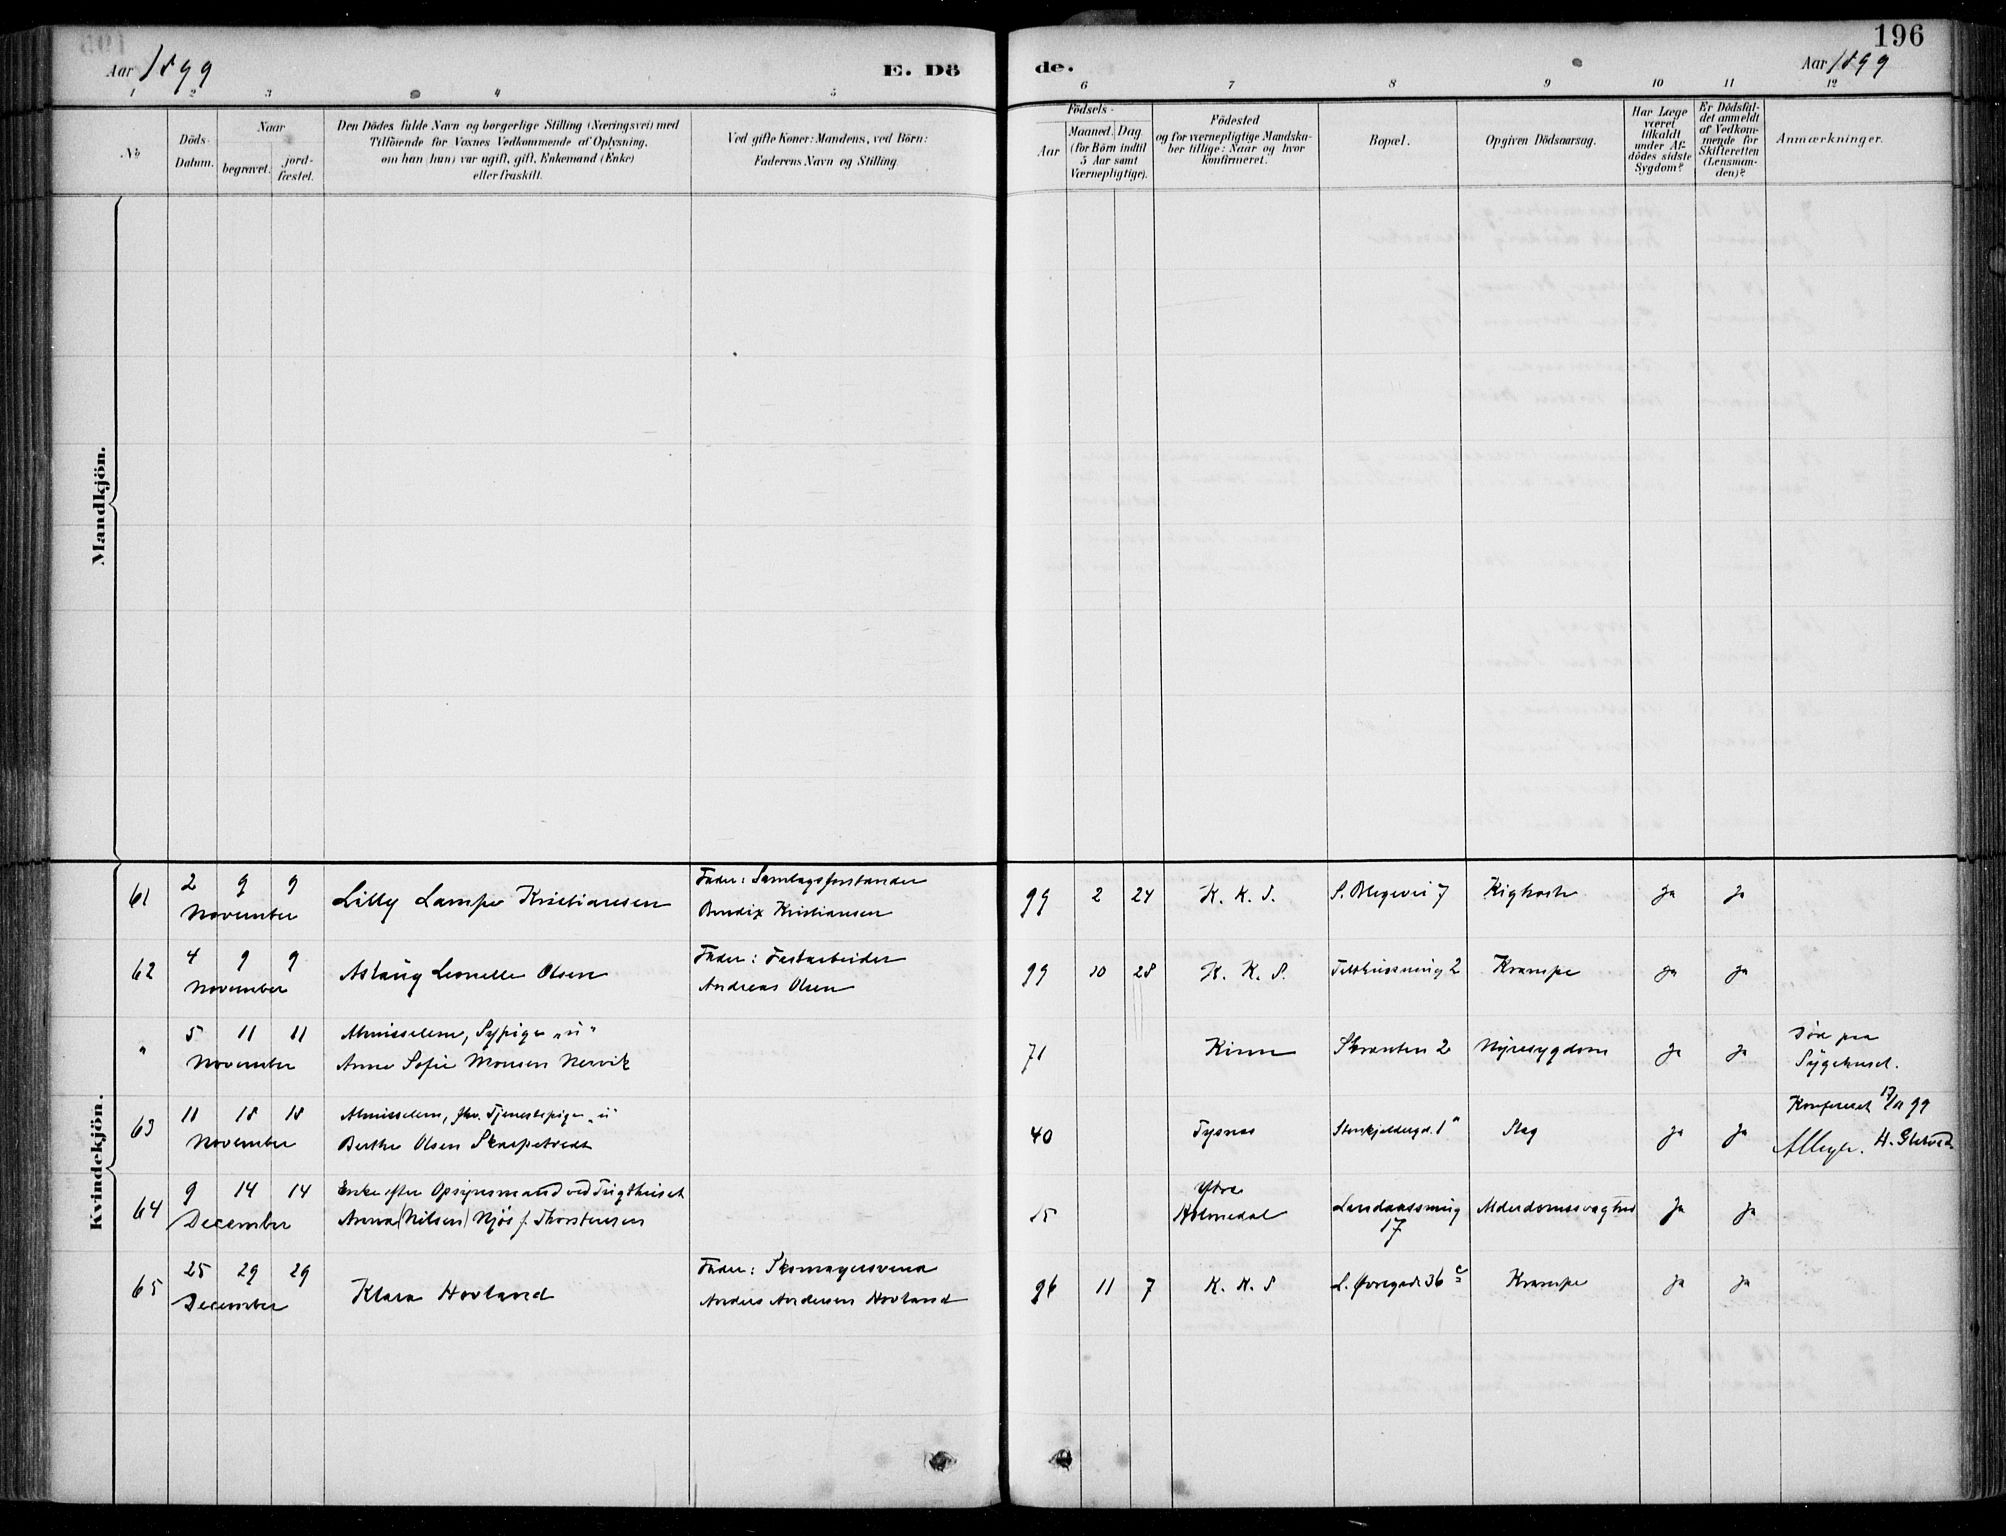 196
Aar 1899
E. Dö
de.
Aar 1899
1 2 3 4 5 6 7 8 9 10 11 12
No
Döds-Datum.
Naar
begravet.
jord-fæstet.
Den Dödes fulde Navn og borgerlige Stilling (Næringsvei) med
Tilföiende for Voxnes Vedkommende af Oplysning,
om han (hun) var ugift, gift, Enkemand (Enke)
eller fraskilt.
Ved gifte Koner: Mandens, ved Börn:
Faderens Navn og Stilling.
Födsels-
Aar
Maaned. Dag
(for Börn indtil
5 Aar samt
Værnepligtige).
Födested
og for værnepligtige Mandska-
ber tillige: Naar og hvor
konfirmeret.
Bopæl.
Opgiven Dödsaarsag.
Har Læge
været
tilkaldt
under Af-
dödes sidste
Sygdom?
Er Dödsfal-
det anmeldt
af Vedkom-
mende for
Skifteretten
(Lensman-
den)?
Anmærkninger.
Mandkjön.
Kvindekjön.
61
2 9 9
November
Lilly Lampe Kristiansen
Fader: Samlagsforstander
Bendix Kristiansen
99 2 24
K. K. S.
S. Blegevei 7
Kighoste
Ja
Ja
62
4 9 9
November
Aslaug Leonelle Olsen
Fader: Fastarbeider
Andreas Olsen
99 10 28
K. K. S.
2
Krampe
Ja
Ja
"
5 11 11
November
Almisselem, Sypige "u"
Anne Sofie Monsen Nervik
71
Kinn
Skranten 2
Nyresygdom
Ja
Ja
Död paa
Sygehuset.
63
11 18 18
November
Almisselem, fhv. Tjenestepige "u"
Berthe Olsen Skarpetvedt
40
Tysnes
Stenkjeldergd. 1a
Slag
Ja
Ja
Konfereret 17/11 99
64
9 14 14
December
Enke efter Opsynsmand ved Tugthuset
Anna (Nilsen) Njös f. Thorstensen
15
Ytre
Holmedal
Landaassmug
17
Alderdomssvaghed
Ja
Ja
65
25 29 29
December
Klara Hovland
Fader: Skomagersvend
Anders Andersen Hovland
96 11 7
K. K. S
L. Øvregade 36 c
Krampe
Ja
Ja